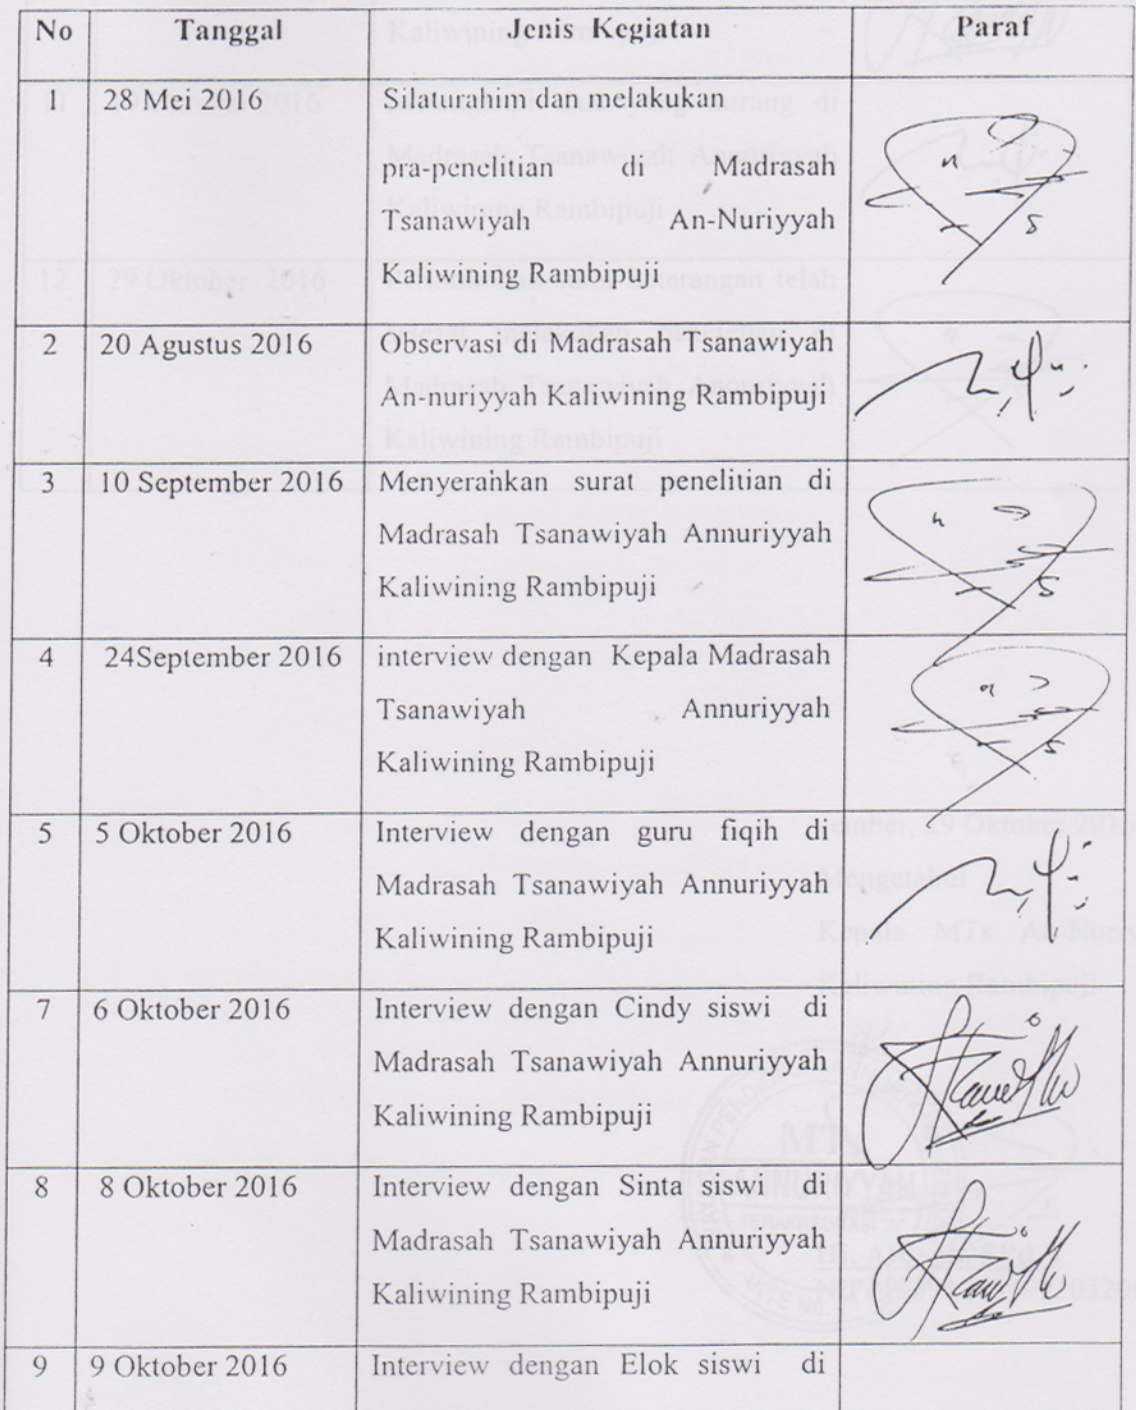 No Tanggal Jenis Kegiatan Paraf
1 28 Mei 2016 Silaturahim dan melakukan
pra-penelitian di Madrasah
Tsanawiyah An-Nuriyyah
Kaliwining Rambipuji
2 20 Agustus 2016 Observasi di Madrasah Tsanawiyah
An-nuriyyah Kaliwining Rambipuji
3 10 September 2016 Menyerahkan surat penelitian di
Madrasah Tsanawiyah Annuriyyah
Kaliwining Rambipuji
4 24September 2016 interview dengan Kepala Madrasah
Tsanawiyah Annuriyyah
Kaliwining Rambipuji
5 5 Oktober 2016 Interview dengan guru fiqih di
Madrasah Tsanawiyah Annuriyyah
Kaliwining Rambipuji
7 6 Oktober 2016 Interview dengan Cindy siswi di
Madrasah Tsanawiyah Annuriyyah
Kaliwining Rambipuji
8 8 Oktober 2016 Interview dengan Sinta siswi di
Madrasah Tsanawiyah Annuriyyah
Kaliwining Rambipuji
9 9 Oktober 2016 Interview dengan Elok siswi di